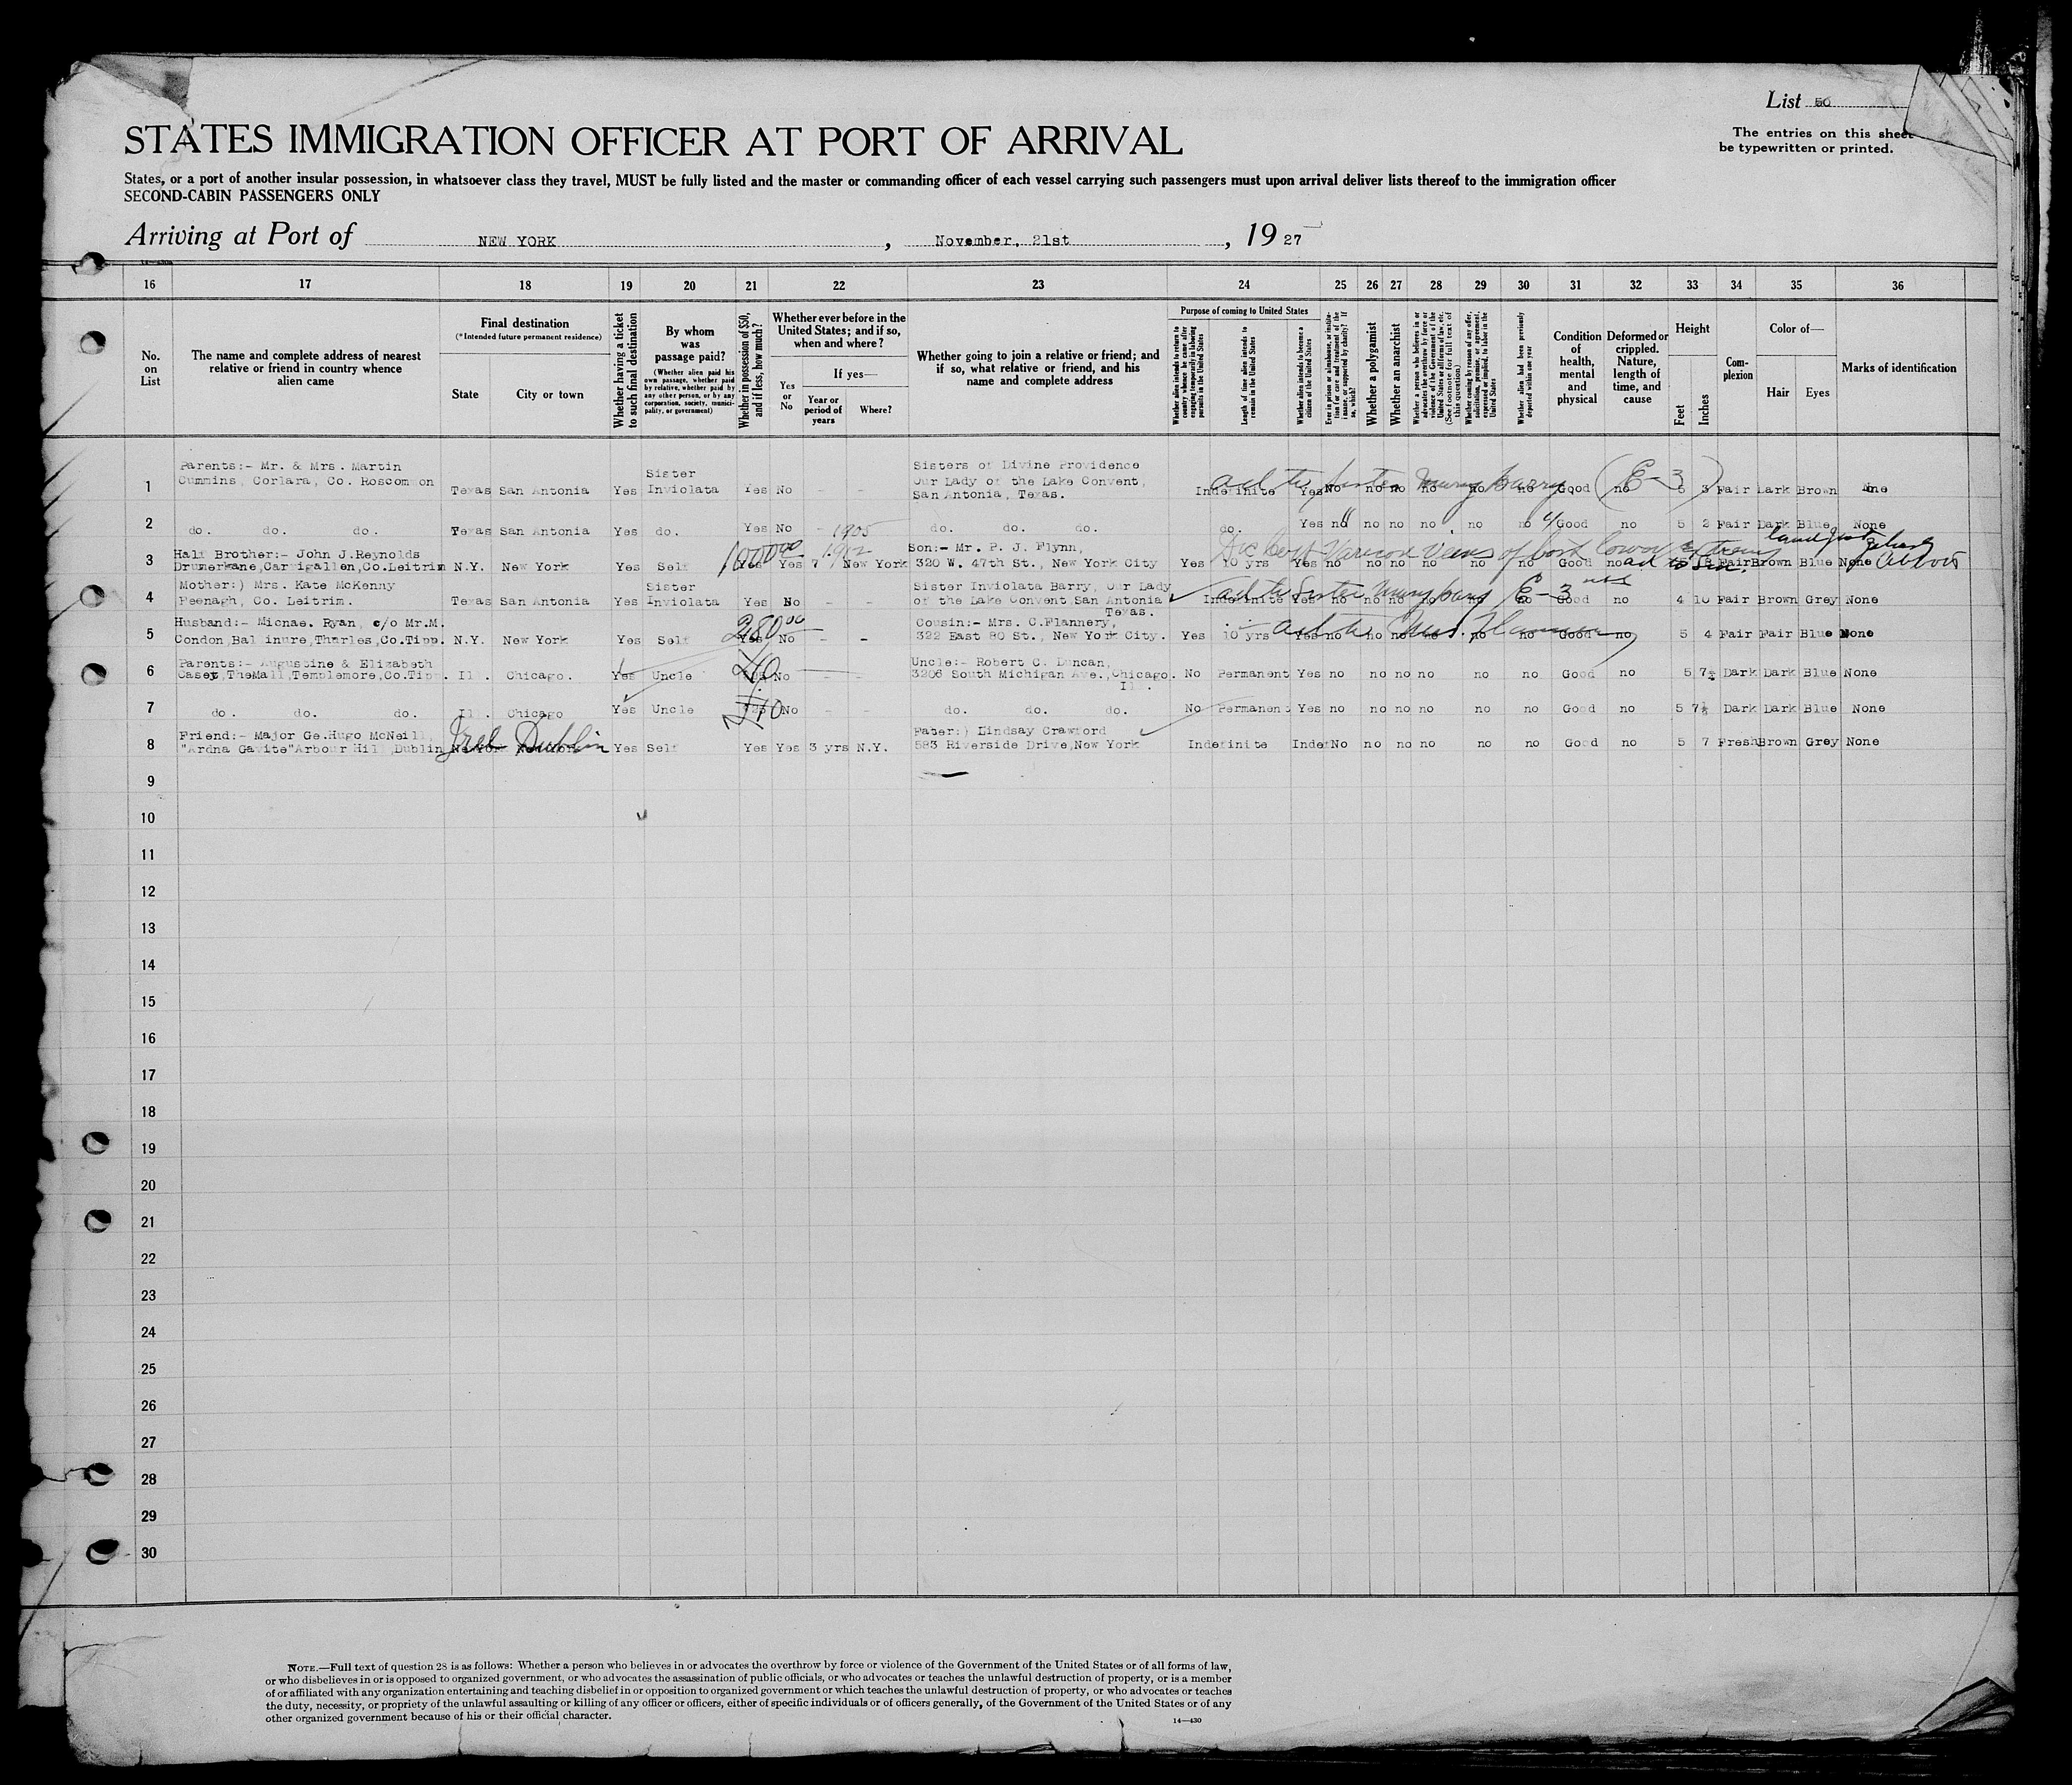 List 50
STATES IMMIGRATION OFFICER AT PORT OF ARRIVAL
The entries on this sheet
be typewritten or printed.
States, or a port of another insular possession, in whatsoever class they travel, MUST be fully listed and the master or commanding officer of each vessel carrying such passengers must upon arrival deliver lists thereof to the immigration officer
SECOND-CABIN PASSENGERS ONLY
Arriving at Port of NEW YORK , November, 21st , 19 27
16 17 18 19 20 21 22 23 24 25 26 27 28 29 30 31 32 33 34 35 36
No. on List
The name and complete address of nearest relative or friend in country whence alien came
Final destination
(*Intended future permanent residence)
State
City or town
Whether having a ticket to such final destination
By whom was passage paid?
(Whether alien paid his own passage, whether paid by relative, whether paid by any other person, or by any corporation, society, municipality, or government)
Whether in possession of $50, and if less, how much?
Whether ever before in the United States; and if so, when and where?
Yes or No
If yes—
Year or period of years
Where?
Whether going to join a relative or friend; and if so, what relative or friend, and his name and complete address
Purpose of coming to United States
Whether alien intends to return to country whence he came after engaging temporarily in laboring pursuits in the United States
Length of time alien intends to remain in the United States
Whether alien intends to become a citizen of the United States
Whether a polygamist
Whether an anarchist
Whether coming by reason of any offer, solicitation, promise, or agreement, expressed or implied, to labor in the United States
Whether alien had been previously deported within one year
Condition of health, mental and physical
Deformed or crippled. Nature, length of time, and cause
Height
Feet
Inches
Complexion
Color of—
Hair
Eyes
Marks of identification
1 Parents:- Mr. & Mrs. Martin
Cummins, Corlara, Co. Roscommon Texas San Antonia Yes Sister Inviolata Yes No - - Sisters of Divine Providence
Our Lady of the Lake Convent,
San Antonia, Texas. Indefinite Yes No no no no no no Good no 5 3 Fair Dark Brown None
(E-3)
2 do. do. do. Texas San Antonia Yes do. Yes No - do. do. do. do. Yes no no no no no no Good no 5 2 Fair Dark Blue None
1905
1912
3 Half Brother:- John J.Reynolds
Drumerkane,Carrigallen,Co.Leitrim N.Y. New York Yes Self Yes Yes 7 New York Son:- Mr. P. J. Flynn,
320 W. 47th St., New York City Yes 10 yrs Yes no no no no no no Good no Fair Brown Blue None
4 Mother:) Mrs. Kate McKenny
Peenagh, Co. Leitrim. Texas San Antonia Yes Sister Inviolata Yes No - Sister Inviolata Barry, Our Lady
of the Lake Convent San Antonia
Texas. Indefinite Yes no no no no no no Good no 4 10 Fair Brown Grey None
E-3
5 Husband:- Michael Ryan, c/o Mr.M.
Condon,Bal inure,Tharles,Co.Tipp. N.Y. New York Yes Self Yes No - - Cousin:- Mrs. C.Flannery,
322 East 80 St., New York City. Yes 10 yrs Yes no no no no no no Good no 5 4 Fair Fair Blue None
6 Parents:- Augustine & Elizabeth
Casey,TheMall,Templemore,Co.Tipp. Ill. Chicago. Yes Uncle No Uncle:- Robert C. Duncan,
3206 South Michigan Ave.,Chicago.
Ill. No Permanent Yes no no no no no no Good no 5 7½ Dark Dark Blue None
7 do. do. do. Ill. Chicago Yes Uncle £10 No - - do. do. do. No Permanent Yes no no no no no no Good no 5 7½ Dark Dark Blue None
8 Friend:- Major Ge.Hugo McNeill,
"Ardna Gavite"Arbour Hill,Dublin Dublin Yes Self Yes Yes 3 yrs N.Y. Pater:) Lindsay Crawford
583 Riverside Drive,New York Indefinite Indef No no no no no no Good no 5 7 Fresh Brown Grey None
9
10
11
12
13
14
15
16
17
18
19
20
21
22
23
24
25
26
27
28
29
30
NOTE.—Full text of question 28 is as follows: Whether a person who believes in or advocates the overthrow by force or violence of the Government of the United States or of all forms of law,
or who disbelieves in or is opposed to organized government, or who advocates the assassination of public officials, or who advocates or teaches the unlawful destruction of property, or is a member
of or affiliated with any organization entertaining and teaching disbelief in or opposition to organized government or which teaches the unlawful destruction of property, or who advocates or teaches
the duty, necessity, or propriety of the unlawful assaulting or killing of any officer or officers, either of specific individuals or of officers generally, of the Government of the United States or of any
other organized government because of his or their official character.
14—430